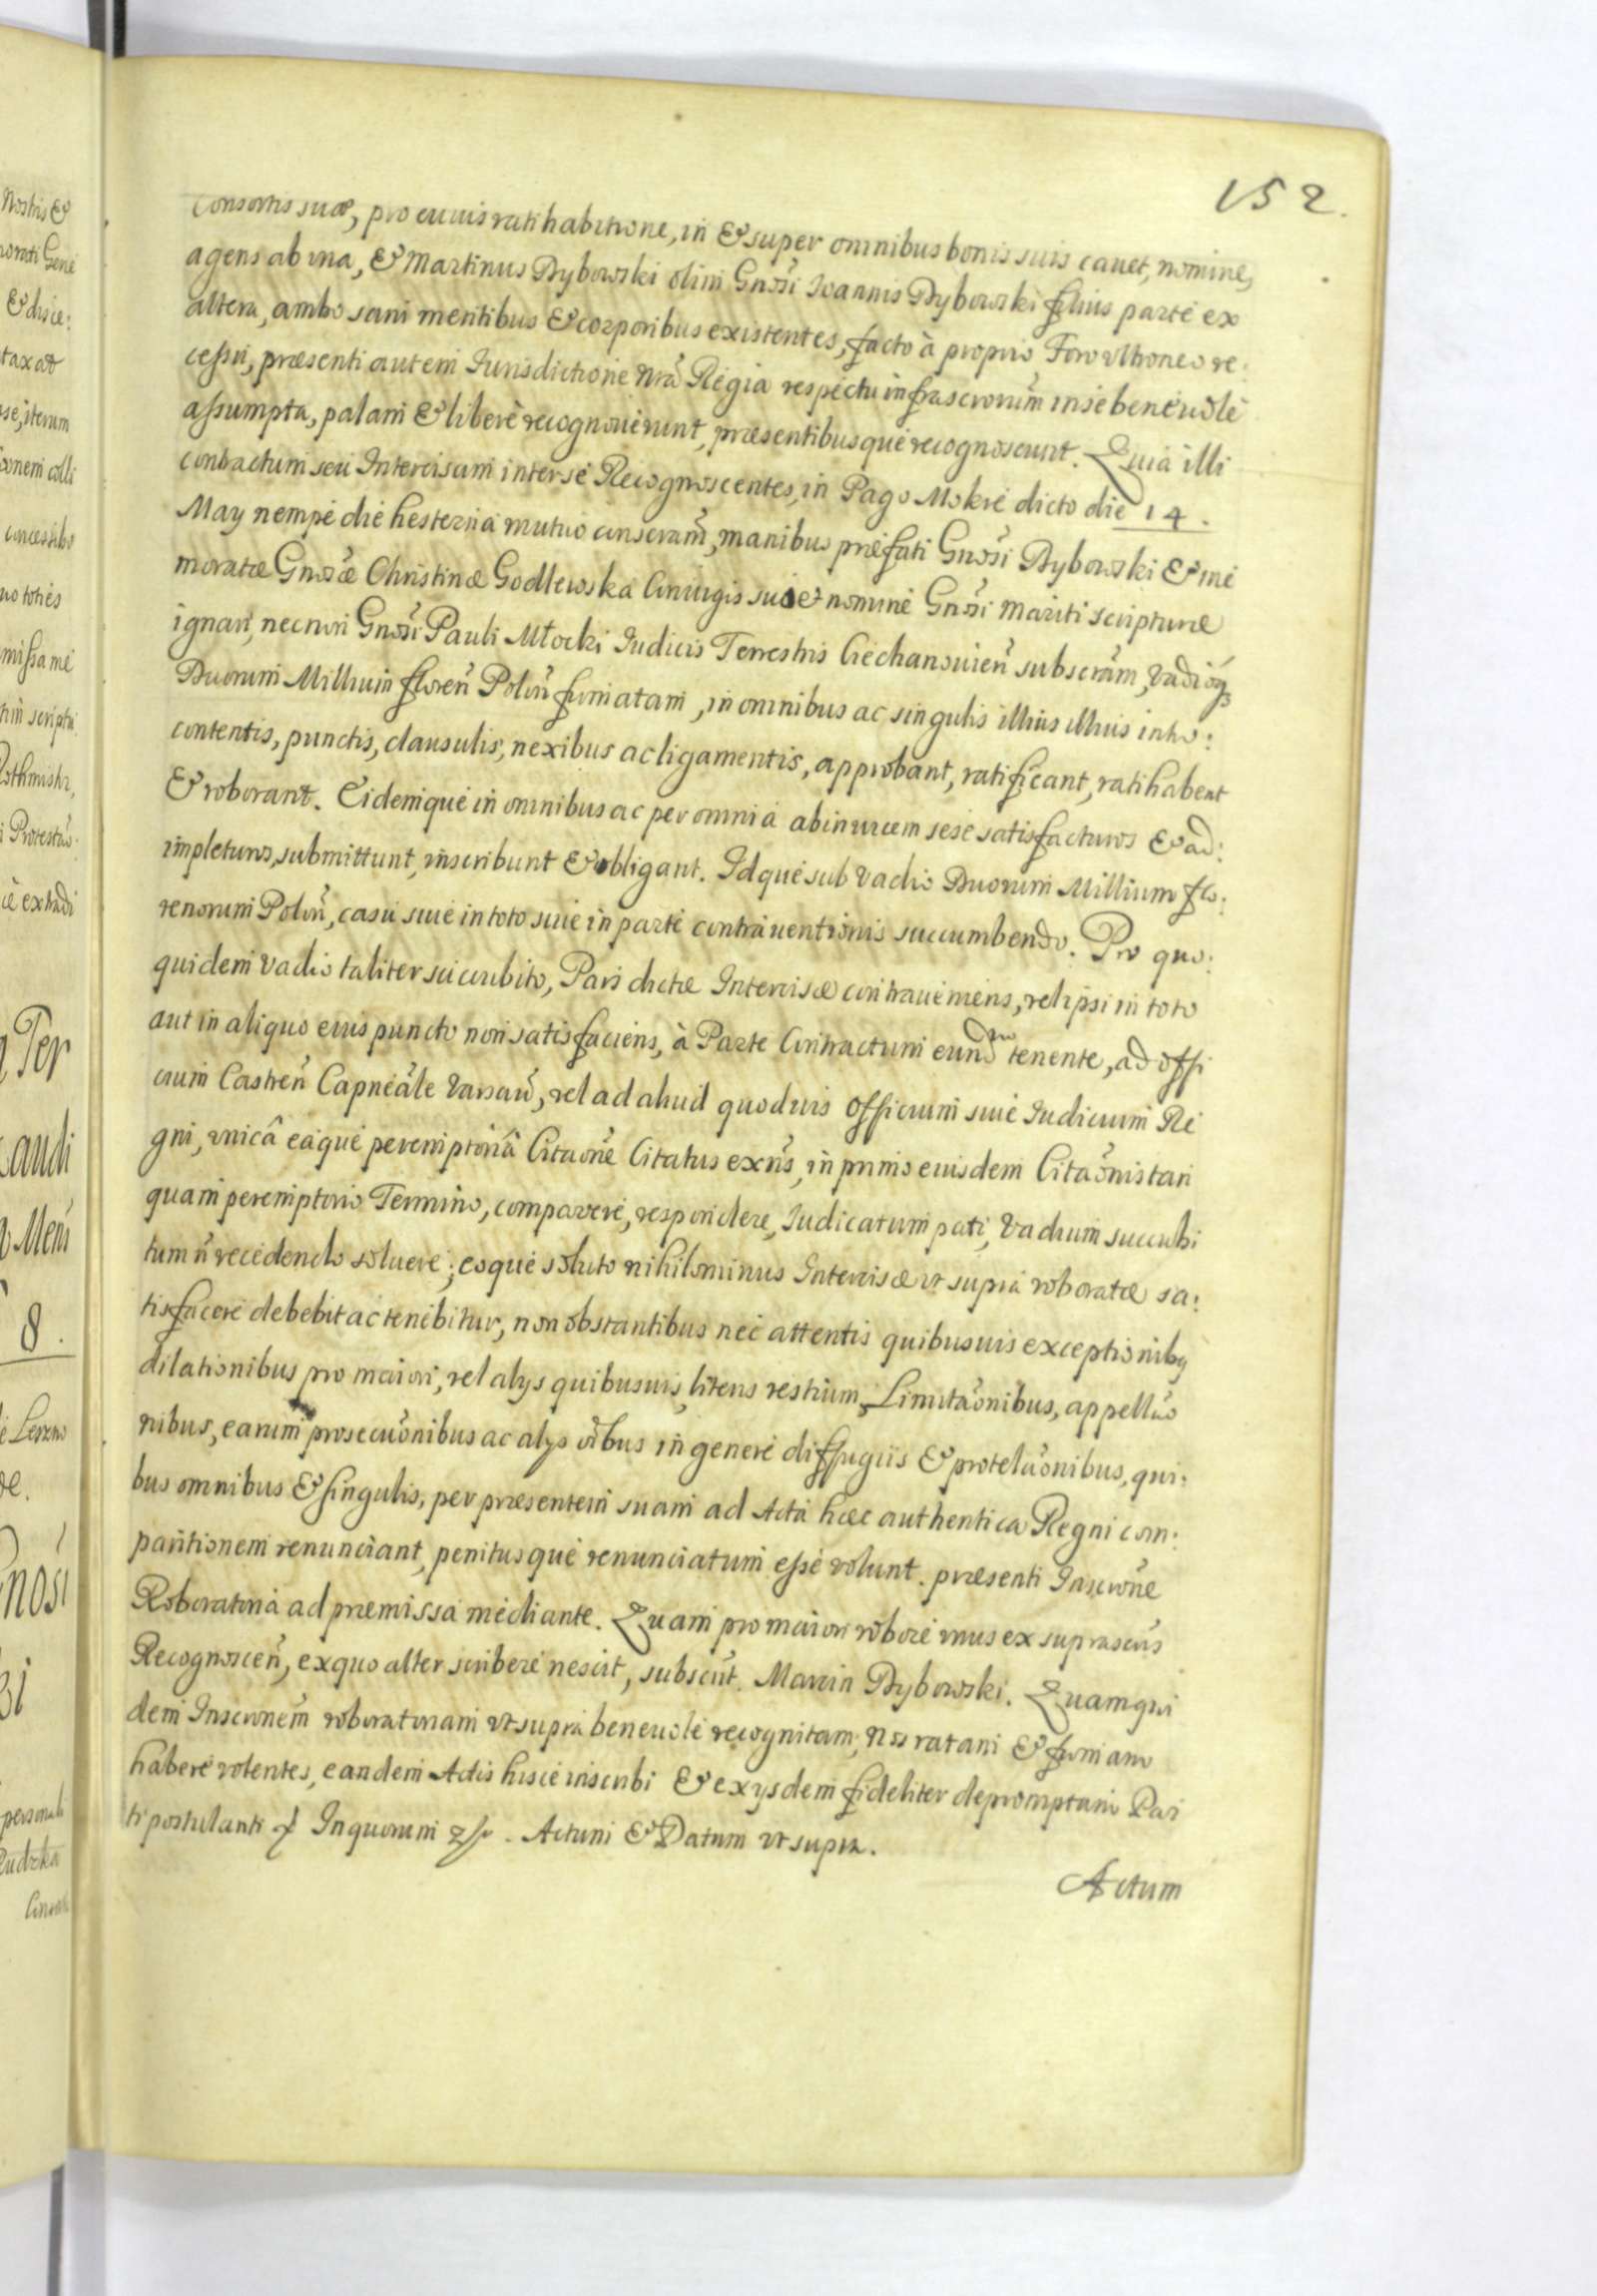 152.
Consortis suæ, pro cuius ratihabitione, in & super omnibus bonis suis cauet, nomine,
agens ab vna, & Martinus Dybowski olim Gnosi Ioannis Dybowski filius parte ex
altera, ambo sani mentibus & corporibus existentes, facto à proprio Foro vltroneo re:
cessu, præsenti autem Iurisdictione nra Regia respectu infrascrorum in se beneuole
assumpta, palam & liberè recognouerunt, præsentibusque recognoscunt. Quia illi
contractum seu Intercisam inter se Recognoscentes, in Pago Mokre dicto die 14.
May nempe die hesterna mutuo conscram, manibus præfati Gnosi Dybowski & me
moratæ Gnosæ Christinæ Godlewska Coniugis suæ nomine Gnosi Mariti scripturæ
ignari, necnon Gnosi Pauli Młocki Iudicis Terrestris Ciechanouien subscram, Vadioq
Duorum Millium floren Polon firmatam, in omnibus ac singulis illius illius intro:
contentis, punctis, clausulis, nexibus ac ligamentis, approbant, ratificant, ratihabent
& roborant. Eidemque in omnibus ac per omnia abinuicem sese satisfacturos & ad:
impleturos, submittunt, inscribunt & obligant. Idque sub Vadio Duorum Millium flo:
renorum Polon, casu siue in toto siue in parte contrauentionis succumbendo. Pro quo:
quidem Vadio taliter succubito, Pars dictæ Intercisæ contraueniens, vel ipsi in toto
aut in aliquo eius puncto non satisfaciens, à Parte Contractum eund tenente, ad offi
cium Castren Capneale Varsauien, vel ad aliud quoduis officium siue Iudicium Re
gni, vnicâ eâque peremptoriâ Citaone Citatus exns, in primo eiusdem Citaonis tan
quam peremptorio Termino, comparere, respondere, Iudicatum pati, Vadium succubi
tum n recedendo soluere; eoque soluto nihilominus Intercisæ vt supra roboratæ sa:
tisfacere debebit ac tenebitur, non obstantibus nec attentis quibusuis exceptionibq
dilationibus pro maiori, vel alys quibusuis, literis restium, Limitaonibus, appellao
nibus, earum prosecuonibus ac alys oibus in genere diffugiis & protelaonibus, qui:
bus omnibus & singulis, per præsentem suam ad Acta hæc authentica Regni com:
paritionem renunciant, penitusque renunciatum esse volunt. præsenti Inscrone
Roboratoria ad præmissa mediante. Quam pro maiori robore vnus ex suprascris
Recognoscen, exquo alter scribere nescit, subscrit. Marcin Dybowski. Quam qui
dem Inscronem roboratoriam vt supra beneuole recognitam, Nos ratam & firmam
habere volentes, eandem Actis hisce inscribi & ex ysdem fideliter depromptam Par
ti postulanti Inquorum . Actum & Datum vt supra.
Actum